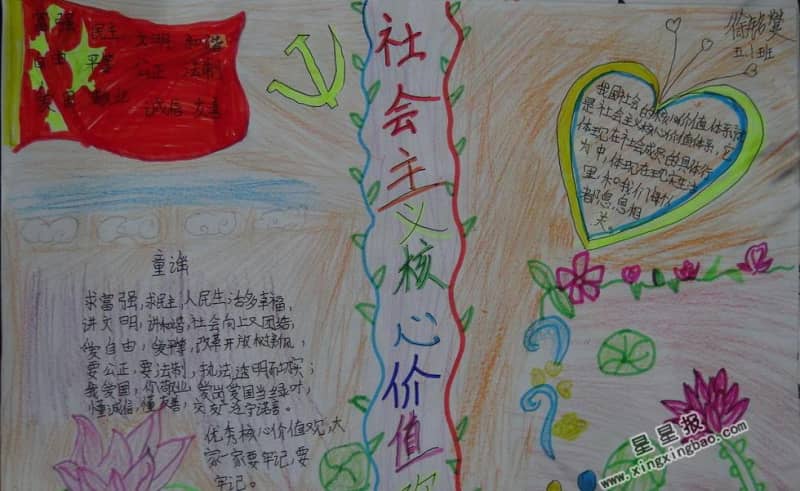 富强 民主 文明 和谐
自由 平等 公正 法制
爱国 敬业 诚信 友善
社会主义核心价值观
五.1班
我国社会的核心价值体系就
是社会主义核心价值体系,它
体现在社会成员的具体行
为中,体现在现实生活
里,和我们每个人
都息息相
关。
童谣
求富强,求民主,人民生活多幸福,
讲文明,讲和谐,社会向上又团结;
爱自由,爱平等,改革开放树新风,
要公正,要法制,执法透明而如实;
我爱国,你敬业,爱岗爱国当绿叶,
懂诚信,懂友善,
优秀核心价值观,大
家一家要牢记,要
牢记。
星星报
www.xingxingbao.com